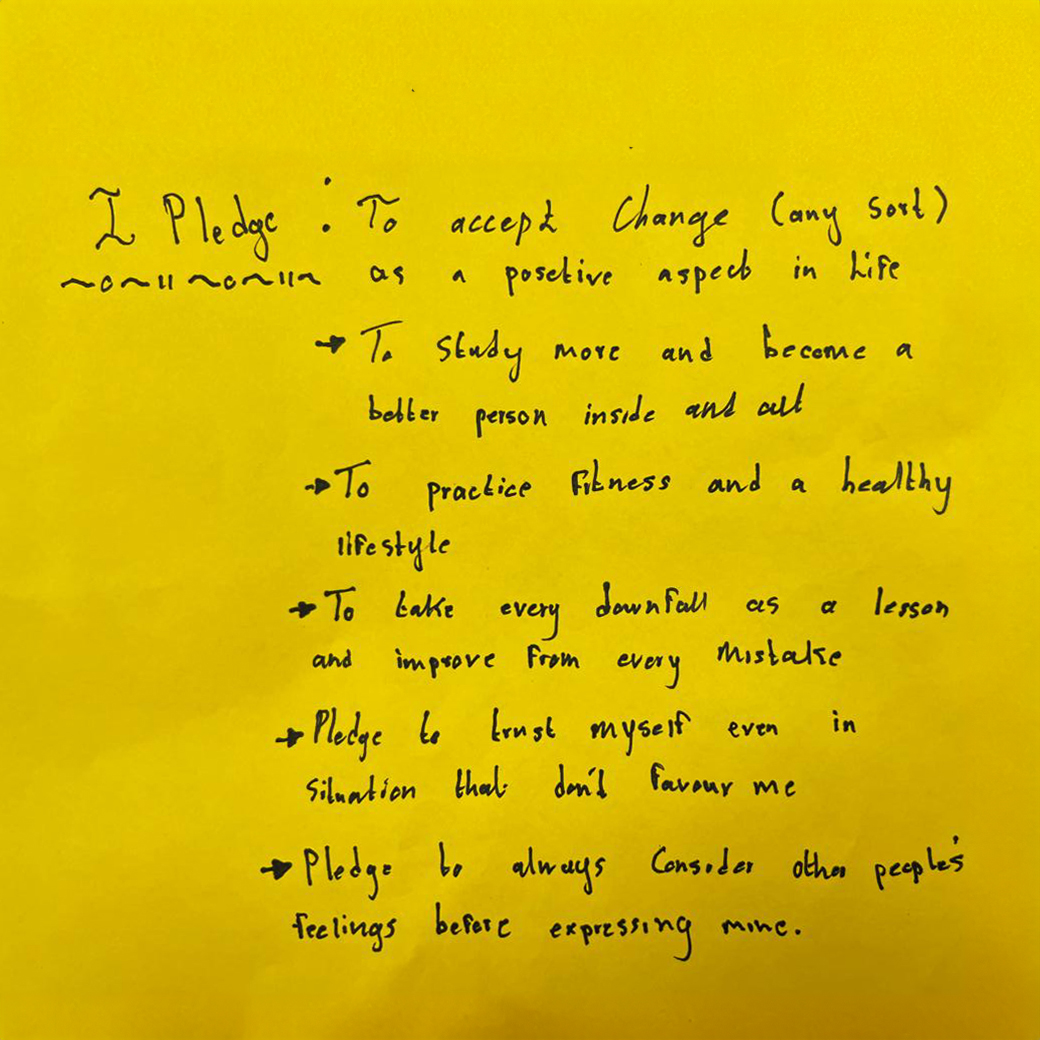 I Pledge : To accept Change (any sort)
as a posetive aspect in Life
→ To study more and become a
better person inside and out
→ To practice fitness and a healthy
lifestyle
→ To take every downfall as a lesson
and improve from every mistake
→ Pledge to trust myself even in
situation that don't favour me
→ Pledge to always Consider other people's
feelings before expressing mine.